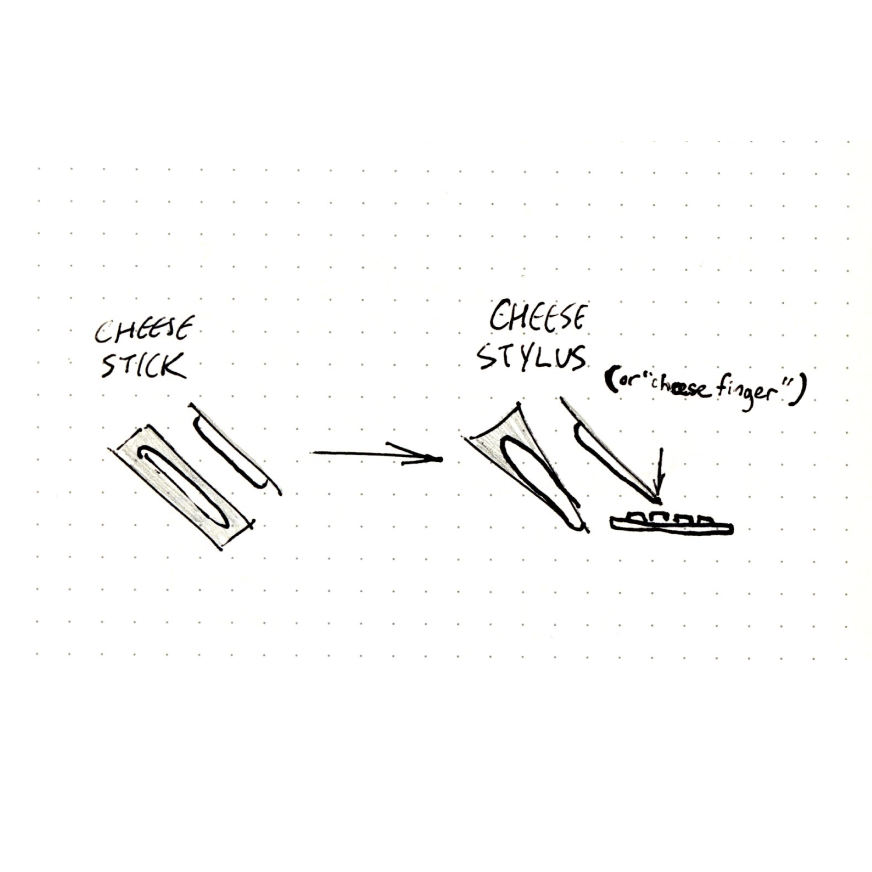 CHEESE
STICK
CHEESE
STYLUS
(or "cheese finger")